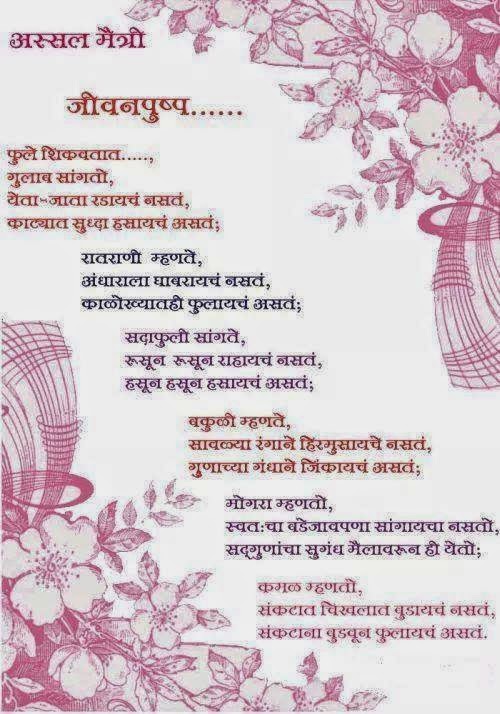 अस्सल मैत्री
जीवनपुष्प......
फुले शिकवतात.....,
गुलाब सांगतो,
येता-जाता रडायचं नसतं,
काट्यात सुध्दा हसायचं असतं;
रातराणी म्हणते,
अंधाराला घाबरायचं नसतं,
काळोख्यातही फुलायचं असतं;
सदाफुली सांगते,
रूसून रूसून राहायचं नसतं,
हसून हसून हसायचं असतं;
बकुळी म्हणते,
सावळ्या रंगाने हिरमुसायचे नसतं,
गुणाच्या गंधाने जिंकायचं असतं;
मोगरा म्हणतो,
स्वत:चा बडेजावपणा सांगायचा नसतो,
सद्‌गुणांचा सुगंध मैलावरून ही येतो;
कमळ म्हणतो,
संकटात चिखलात बुडायचं नसतं,
संकटाना बुडवून फुलायचं असतं.